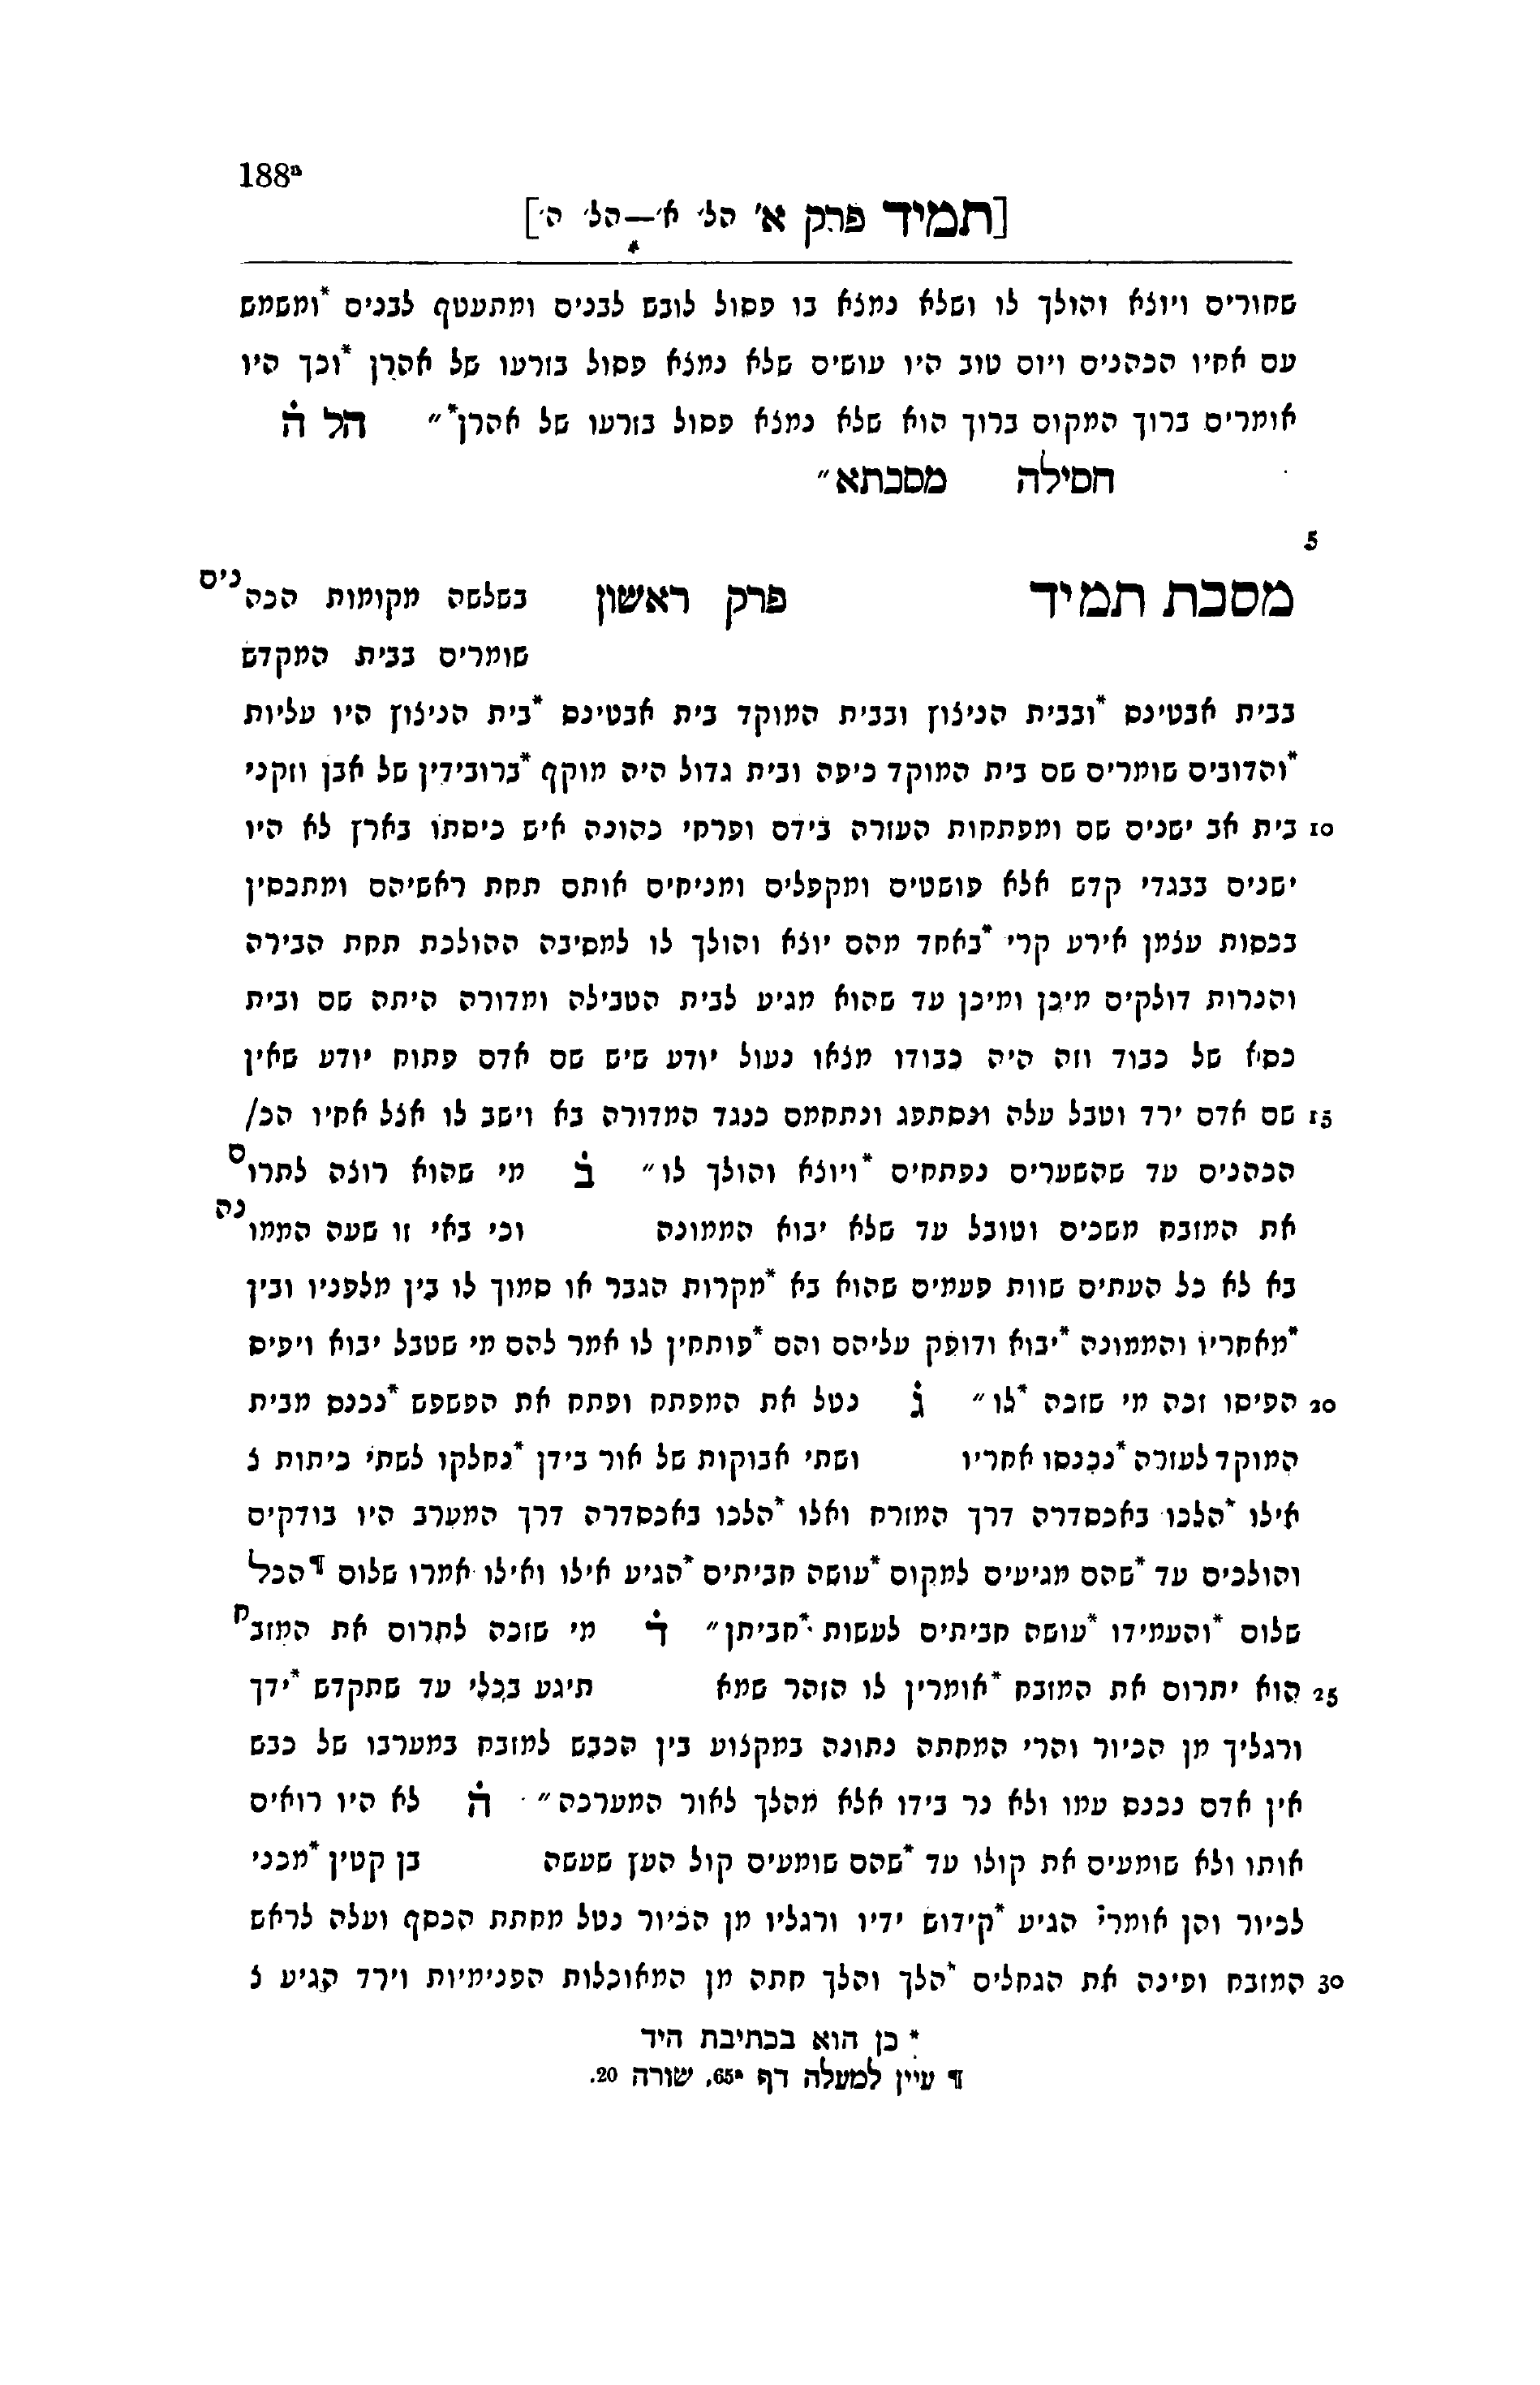 188ª
[תמיד פרק א׳ הל׳ א׳—הל׳ ה׳]
שחורים ויוצא והולך לו ושלא נמצא בו פסול לובש לבנים ומתעטף לבנים *ומשמש
עם אחיו הכהנים ויום טוב היו עושים שלא נמצא פסול בזרעו של אהרן *וכך היו
אומרים ברוך המקום ברוך הוא שלא נמצא פסול בזרעו של אהרן*״ הל ה
חסילה מסכתא״
5
מסכת תמיד פרק ראשון בשלשה מקומות הכהנים
שומרים בבית המקדש
בבית אבטינס *ובבית הניצוץ ובבית המוקד בית אבטינס *בית הניצוץ היו עליות
*והדובים שומרים שם בית המוקד כיפה ובית גדול היה מוקף *ברובידין של אבן וזקני
10 בית אב ישנים שם ומפתחות העזרה בידם ופרחי כהונה איש כיסתו בארץ לא היו
ישנים בבגדי קדש אלא פושטים ומקפלים ומניחים אותם תחת ראשיהם ומתכסין
בכסות עצמן אירע קרי *באחד מהם יוצא והולך לו למסיבה ההולכת תחת הבירה
והנרות דולקים מיכן ומיכן עד שהוא מגיע לבית הטבילה ומדורה היתה שם ובית
כסיא של כבוד וזה היה כבודו מצאו נעול יודע שיש שם אדם פתוח יודע שאין
15 שם אדם ירד וטבל עלה ונסתפג ונתחמם כנגד המדורה בא וישב לו אצל אחיו הכ/
הכהנים עד שהשערים נפתחים *ויוצא והולך לו״ ב מי שהוא רוצה לתרום
את המזבח משכים וטובל עד שלא יבוא הממונה וכי באי זו שעה הממונה
בא לא כל העתים שוות פעמים שהוא בא *מקרות הגבר או סמוך לו בין מלפניו ובין
*מאחריו והממונה *יבוא ודופק עליהם והם *פותחין לו אמר להם מי שטבל יבוא ויפיס
20 הפיסו זכה מי שזכה *לו״ ג נטל את המפתח ופתח את הפשפש *נכנס מבית
המוקד לעזרה *נכנסו אחריו ושתי אבוקות של אור בידן *נחלקו לשתי כיתות צ
אילו *הלכו באכסדרה דרך המזרח ואלו *הלכו באכסדרה דרך המערב היו בודקים
והולכים עד *שהם מגיעים למקום *עושה חביתים *הגיע אילו ואילו אמרו שלום ¶הכל
שלום *והעמידו *עושה חביתים לעשות *חביתן״ ד מי שזכה לתרום את המזבח
25 הוא יתרום את המזבח *אומרין לו הזהר שמא תיגע בכלי עד שתקדש *ידך
ורגליך מן הכיור והרי המחתה נתונה במקצוע בין הכבש למזבח במערבו של כבש
אין אדם נכנס עמו ולא נר בידו אלא מהלך לאור המערכה״ ה לא היו רואים
אותו ולא שומעים את קולו עד *שהם שומעים קול העץ שעשה בן קטין *מכני
לכיור והן אומרי׳ הגיע *קידוש ידיו ורגליו מן הכיור נטל מחתת הכסף ועלה לראש
30 המזבח ופינה את הגחלים *הלך והלך חתה מן המאוכלות הפנימיות וירד הגיע צ
* כן הוא בכתיבת היד
¶ עיין למעלה דף 65ª, שורה 20.